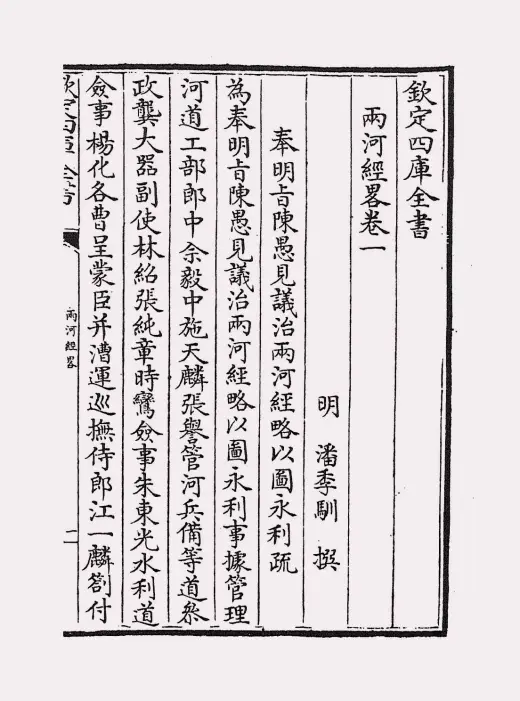 欽定四庫全書
兩河經畧卷一
明 潘季馴 撰
奉明旨陳愚見議治兩河經略以圖永利疏
為奉明旨陳愚見議治兩河經略以圖永利事據管理
河道工部郎中佘毅中施天麟張譽管河兵備等道叅
政龔大器副使林紹張純章時鸞僉事朱東光水利道
僉事楊化各曹呈蒙臣并漕運巡撫侍郎江一麟劄付
欽定四庫全書
兩河經畧
一